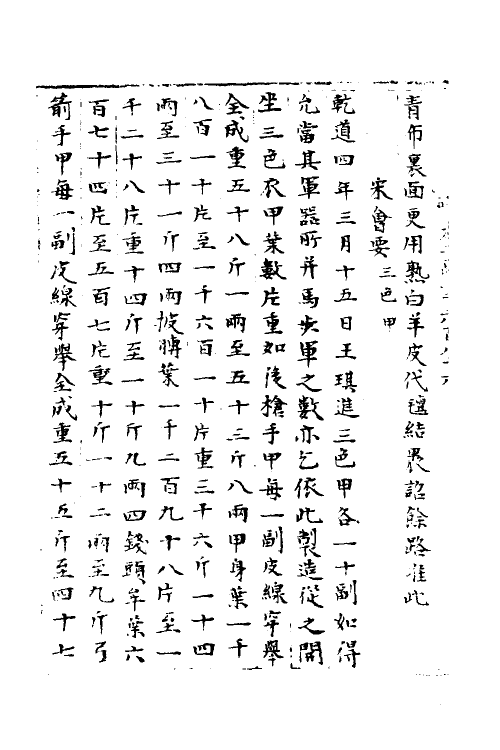 青布裏面更用熟白羊皮代氊結裹詔餘路准此
宋會要三色甲
乾道四年三月十五日王琪進三色甲各一十副如得
允當其軍器所并馬步軍之數亦乞依此製造從之開
坐三色衣甲葉數片重如後槍手甲每一副皮線穿舉
全成重五十八斤一兩至五十三斤八兩甲身葉一千
八百一十片至一千六百一十片重三十六斤一十四
兩至三十一斤四兩披膊葉一千二百九十八片至一
千二十八片重十四斤至一十斤九兩四錢頭牟葉六
百七十四片至五百七片重十斤一十二兩至九斤弓
箭手甲每一副皮線穿舉全成重五十五斤至四十七